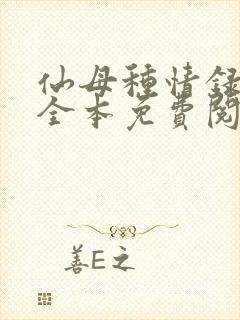 仙母種情録
全本免費閱
善E之